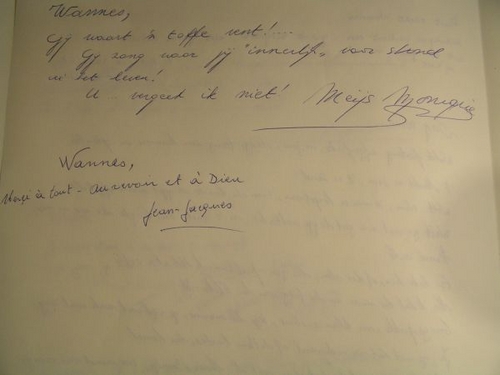 Wannes,
Gij waart 'n toffe vent!...
Gij zong waar gij "innerlijk" voor stond
in het leven!
U vergeet ik niet! Meijs Monique
Wannes,
Merci à tout - au revoir et à Dieu
Jean-Jacques